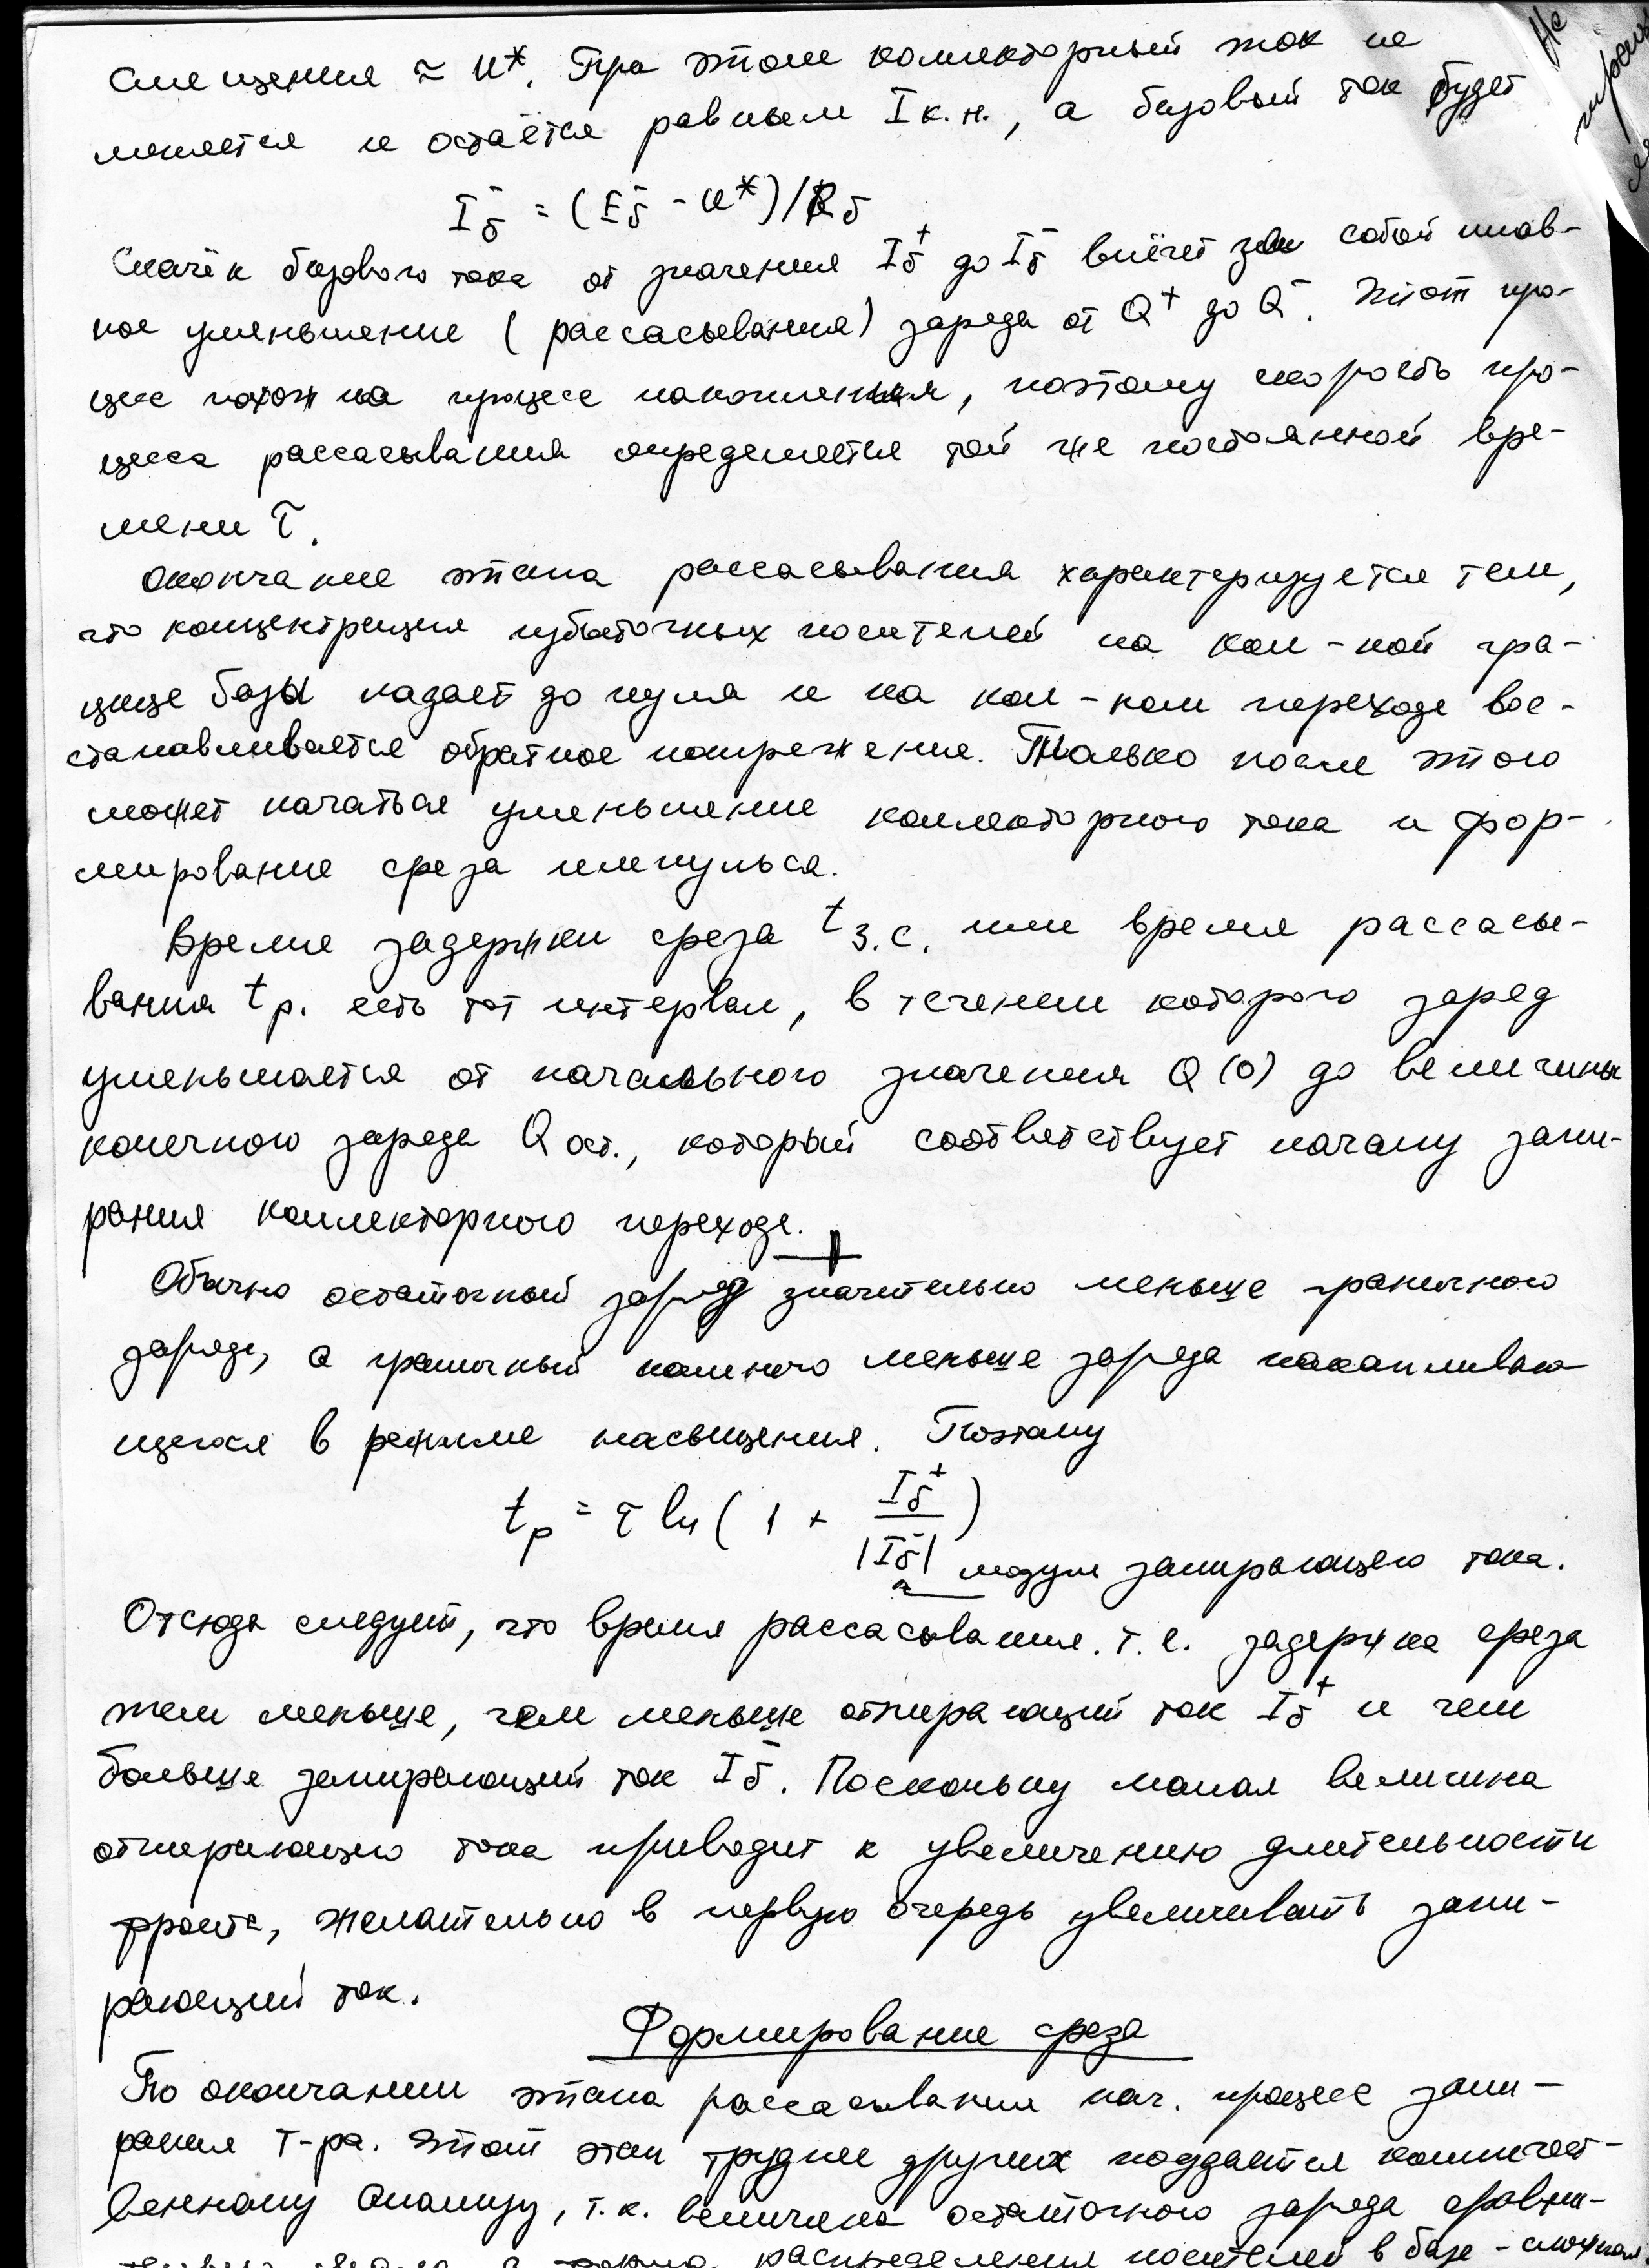 смещения ≈ U*. При этом коллекторный ток не
меняется и остаётся равным Iк.н., а базовый ток будет
Iб⁻ = (Eб⁻ - U*)/Rб
Скачёк базового тока от значения Iб⁺ до Iб⁻ влечёт за собой плав-
ное уменьшение (рассасывания) заряда от Q⁺ до Q⁻. Этот про-
цес похож на процесс накопления, поэтому скорость про-
цесса рассасывания определяется той же постоянной вре-
мени τ.
Окончание этапа рассасывания характеризуется тем,
что концентрация избыточных носителей на кол-ной гра-
нице базы падает до нуля и на кол-ном переходе вос-
станавливается обратное напряжение. Только после этого
может начаться уменьшение коллекторного тока и фор-
мирование среза импульса.
Время задержки среза tз.с. или время рассасы-
вания tр. есть тот интервал, в течении которого заряд
уменьшается от начального значения Q(0) до величины
конечного заряда Qост., который соответствует началу запи-
рания коллекторного перехода.
Обычно остаточный заряд значительно меньше граничного
заряда, а граничный намного меньше заряда накапливаю-
щегося в режиме насыщения. Поэтому
tр = τ ln(1 + Iб⁺/|Iб⁻|)
модуль запирающего тока.
Отсюда следует, что время рассасывания. т.е. задержка среза
тем меньше, чем меньше отпирающий ток Iб⁺ и чем
больше запирающий ток Iб⁻. Поскольку малая величина
отпирающего тока приводит к увеличению длительности
фронта, желательно в первую очередь увеличивать запи-
рающий ток.
Формирование среза
По окончании этапа рассасывания нач. процесс запи-
рания Т-ра. Этот этап труднее других поддается количест-
венному анализу, т.к. величина остаточного заряда сравни-
распределения носителей в базе - сложная
Не